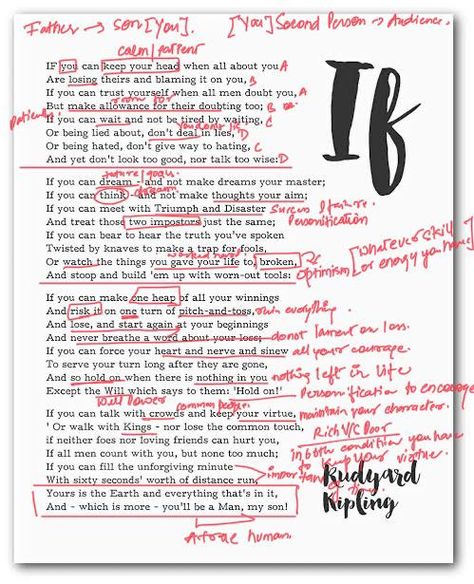 Father → Son [You]. [You] Second Person → Audience.
calm/patient
IF you can keep your head when all about you A
Are losing theirs and blaming it on you, B
If you can trust yourself when all men doubt you, A
room for
But make allowance for their doubting too; B
patience
If you can wait and not be tired by waiting, C
Or being lied about, don't deal in lies, D
Or being hated, don't give way to hating, C
And yet don't look too good, nor talk too wise: D
future/goals
If you can dream - and not make dreams your master;
If you can think - and not make thoughts your aim;
If you can meet with Triumph and Disaster success/failure
And treat those two impostors just the same; Personification
If you can bear to hear the truth you've spoken
Twisted by knaves to make a trap for fools,
worked hard
Or watch the things you gave your life to, broken,
And stoop and build 'em up with worn-out tools: Optimism
[Whatever skill or energy you have]
If you can make one heap of all your winnings
And risk it on one turn of pitch-and-toss, everything
And lose, and start again at your beginnings
And never breathe a word about your loss; do not lament on loss.
If you can force your heart and nerve and sinew all your courage
To serve your turn long after they are gone,
And so hold on when there is nothing in you nothing left in life
Except the Will which says to them: 'Hold on!' Personification to encourage
Will Power
common people
If you can talk with crowds and keep your virtue, maintain your character.
' Or walk with Kings - nor lose the common touch, Rich V/S Poor
if neither foes nor loving friends can hurt you, in both condition you have
If all men count with you, but none too much; to keep your virtue.
If you can fill the unforgiving minute
With sixty seconds' worth of distance run, importance of time.
Yours is the Earth and everything that's in it,
And - which is more - you'll be a Man, my son!
A true human.
If
Rudyard
Kipling